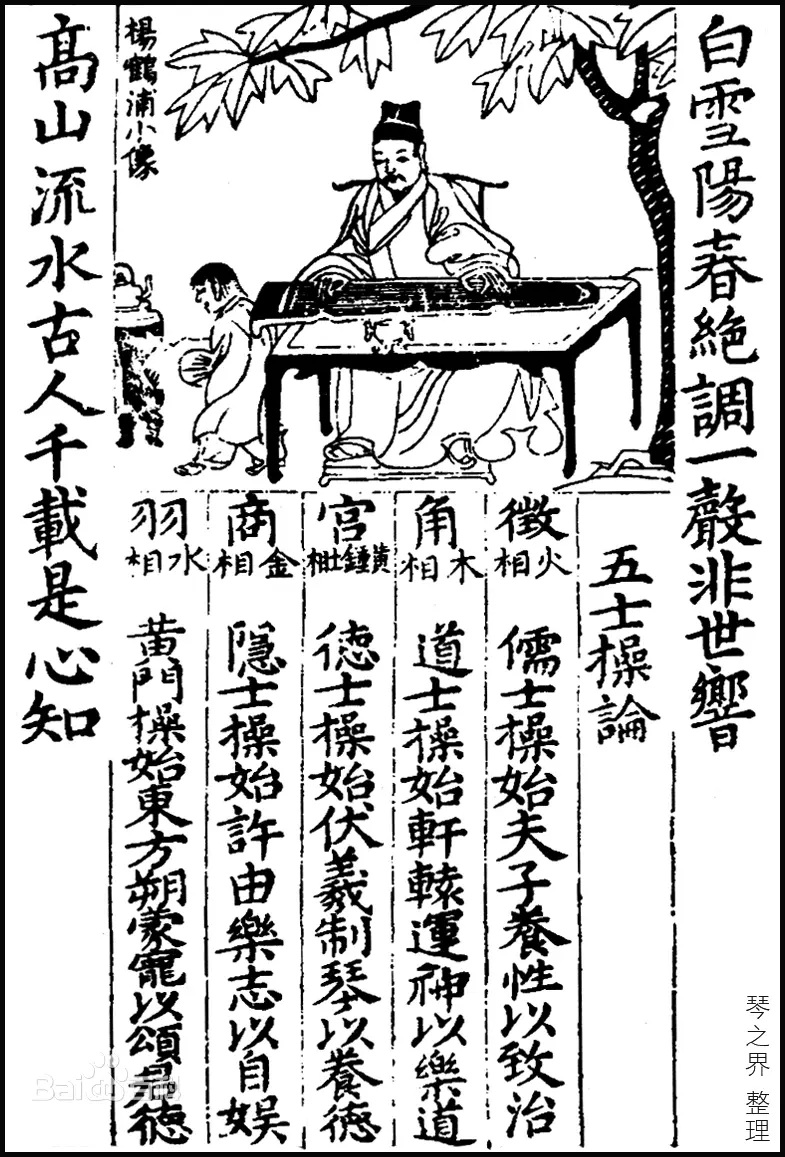 白雪陽春絶調一聲非世響
楊鶴浦小像
高山流水古人千載是心知
五士操論
徵
火相
儒士操始夫子養性以致治
角
木相
道士操始軒轅運神以樂道
宮
黃鍾土相
德士操始伏羲制琴以養德
商
金相
隱士操始許由樂志以自娛
羽
水相
黃門操始東方朔蒙寵以頌君德
琴之界 整理
Bai百科